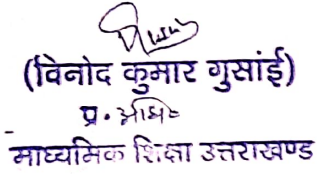 (विनोद कुमार गुसांई)
प्र॰ अधि॰
माध्यमिक शिक्षा उत्तराखण्ड